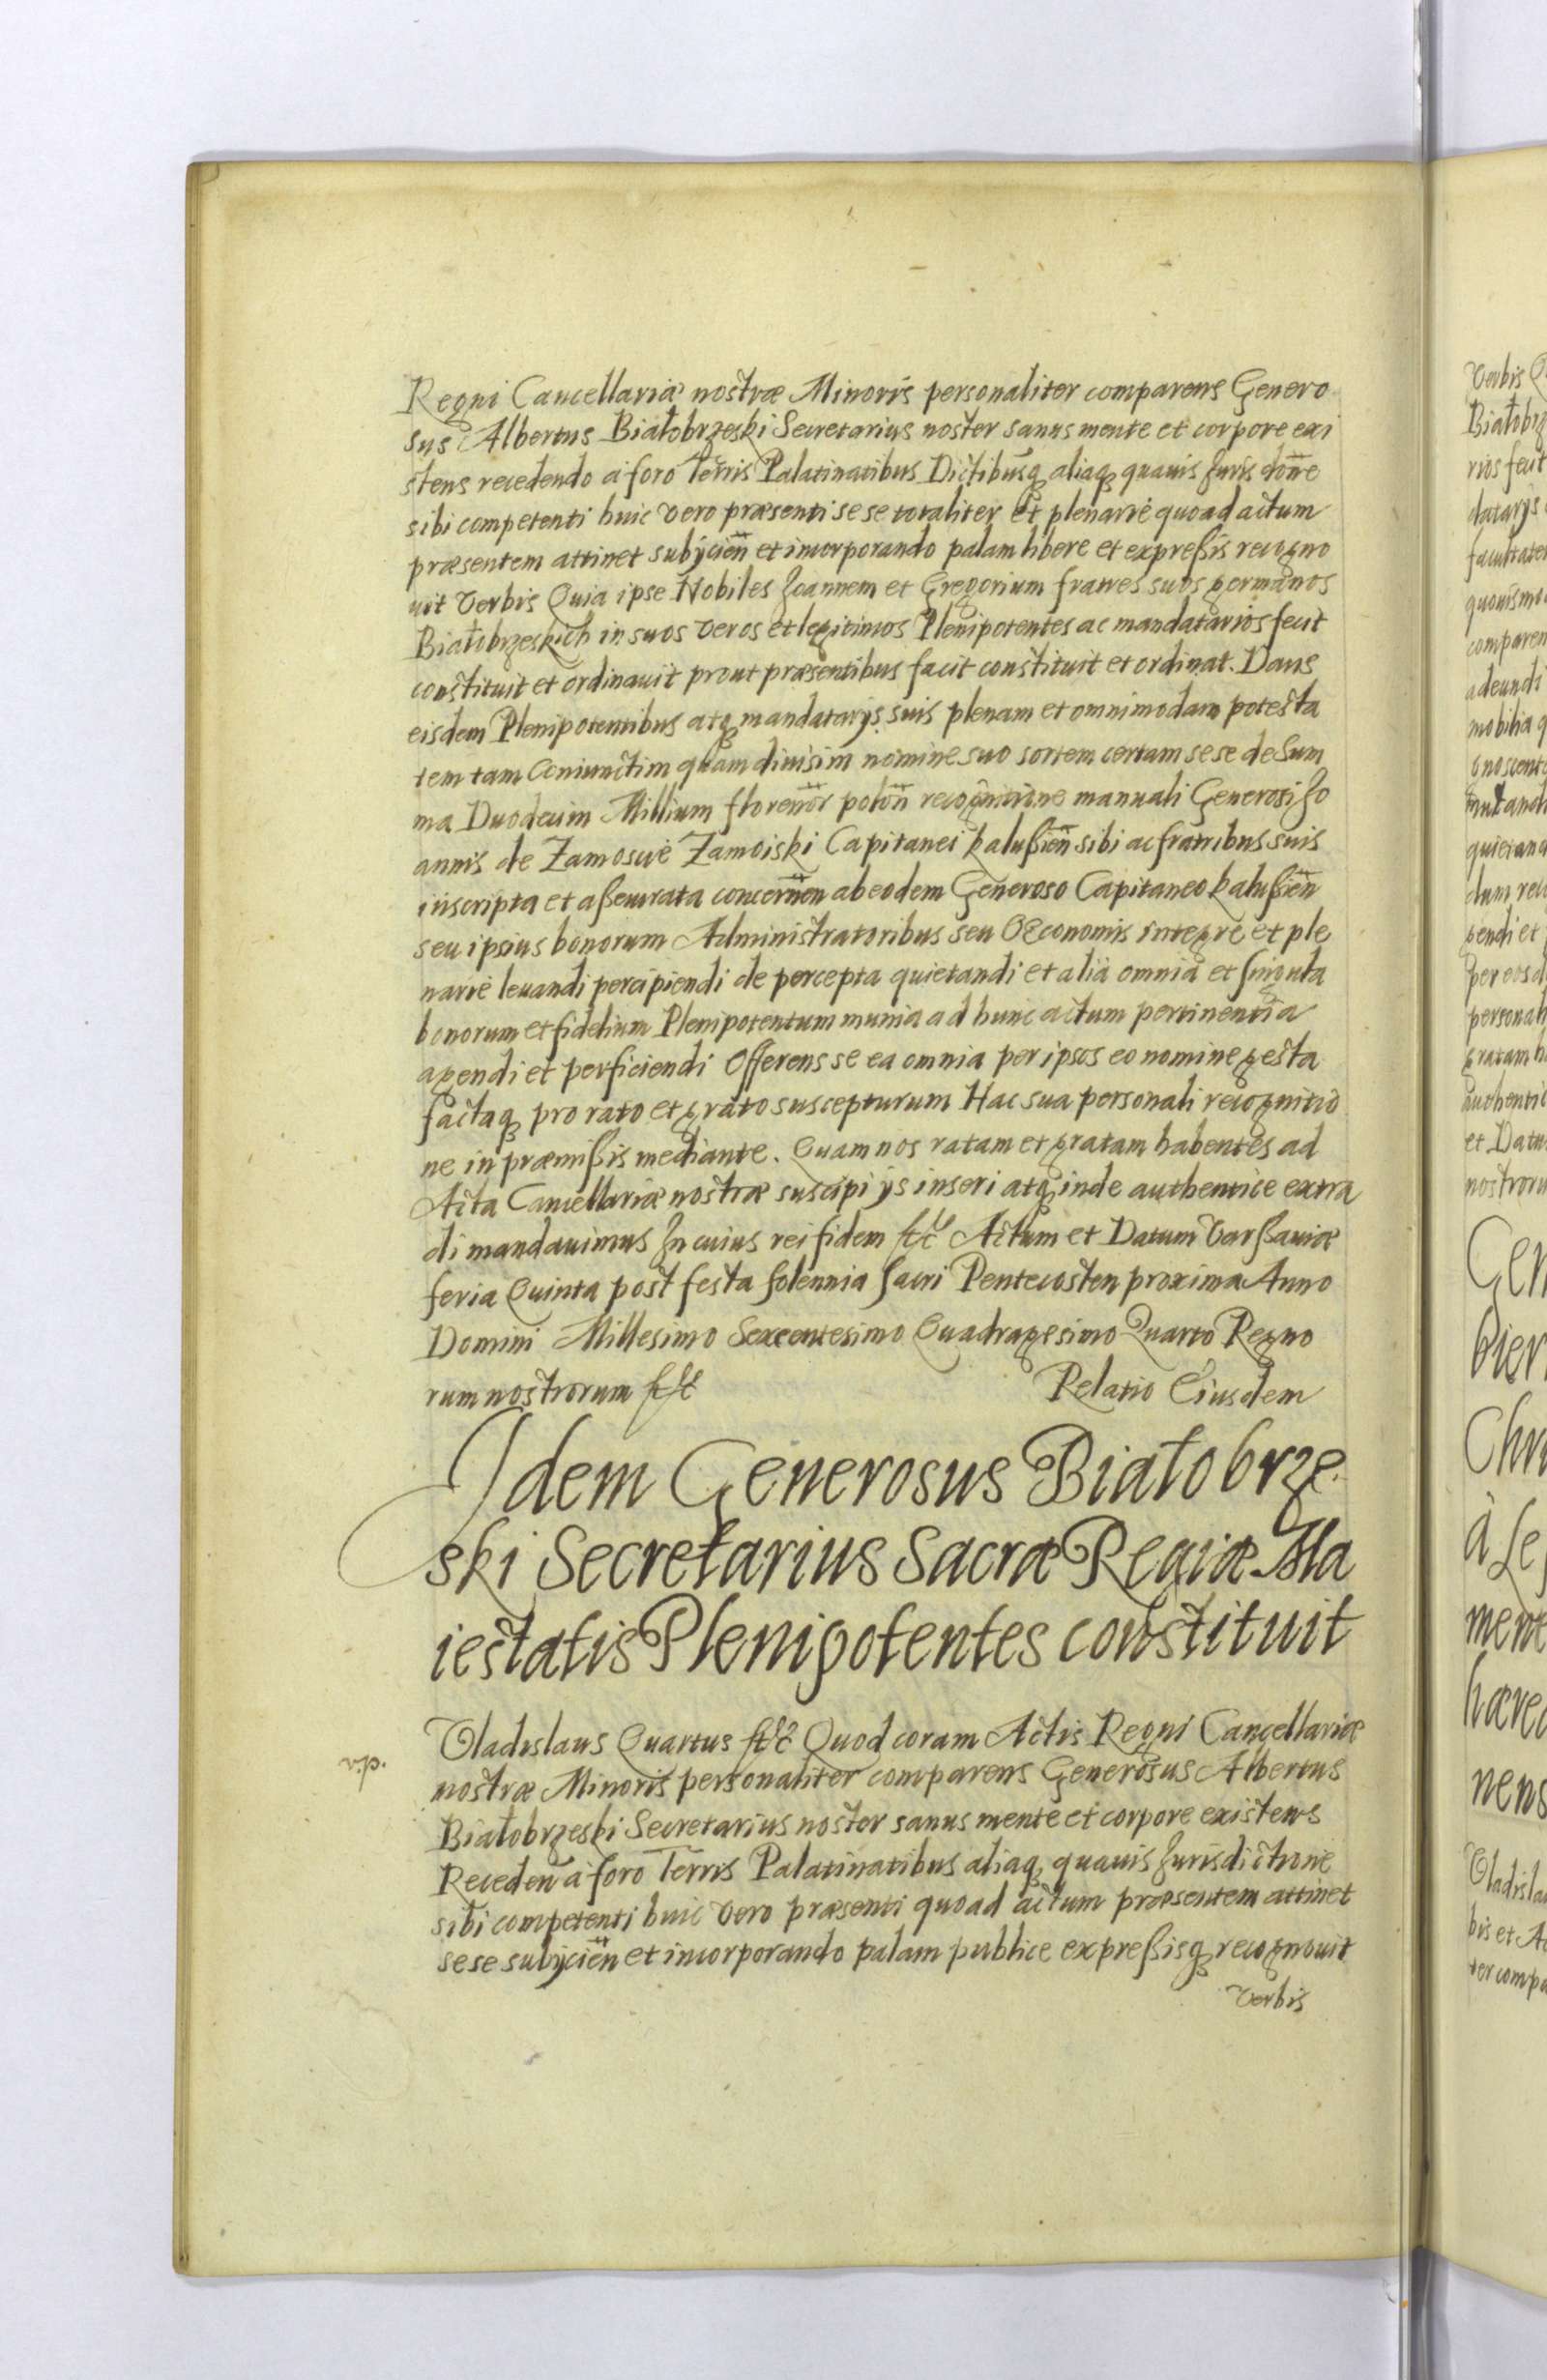 Regni Cancellariæ nostræ Minoris personaliter comparens Genero
sus Albertus Białobrzeski Secretarius noster sanus mente et corpore exi
stens recedendo à foro Terris Palatinatibus Dictibusq̃ aliaq̃ quauis Jurisdoñe
sibi competenti huic vero præsenti sese totaliter et plenarie quoad actum
præsentem attinet subijcień et incorporando palam libere et expreßis recogno
uit verbis Quia ipse Nobiles Joannem et Gregorium fratres suos germanos
Białobrzeskich in suos veros et legitimos Plenipotentes ac mandatarios fecit
constituit et ordinauit prout præsentibus facit constituit et ordinat. Dans
eisdem Plenipotentibus atq̃ mandatarijs suis plenam et omnimodam potesta
tem tam Coniunctim quam diuisim nomine suo sortem certam sese de Sum
ma Duodecim Millium florenor̃ poloń recognitione manuali Generosi Jo
annis de Zamoscie Zamoiski Capitanei kalußień sibi ac fratribus suis
inscripta et aßeurata concerneń ab eodem Generoso Capitaneo kalußień
seu ipsius bonorum Administratoribus seu OEconomis integre et ple
narie leuandi percipiendi de percepta quietandi et alia omnia et singula
bonorum et fidelium Plenipotentum munia ad hunc actum pertinentia
agendi et perficiendi Offerens se ea omnia per ipsos eo nomine gesta
factaq̃ pro rato et grato suscepturum Hac sua personali recognitio
ne in præmißis mediante. Quam nos ratam et gratam habentes ad
Acta Cancellariæ nostræ suscipi ijs inseri atq̃ inde authentice extra
di mandauimus In cuius rei fidem &c Actum et Datum Varsauiæ
feria Quinta post festa solennia Sacri Pentecosten proxima Anno
Domini Millesimo Sexcentesimo Quadragesimo Quarto Regno
rum nostrorum &c Relatio Eiusdem
Idem Generosus Białobrze
ski Secretarius Sacræ Regiæ Ma
iestatis Plenipotentes constituit
Vladislaus Quartus &c Quod coram Actis Regni Cancellariæ
nostræ Minoris personaliter comparens Generosus Albertus
Białobrzeski Secretarius noster sanus mente et corpore existens
Recedeń à foro Terris Palatinatibus aliaq̃ quauis Jurisdictione
sibi competenti huic vero præsenti quoad actum præsentem attinet
sese subijcień et incorporando palam publice expreßisq̃ recognouit
verbis